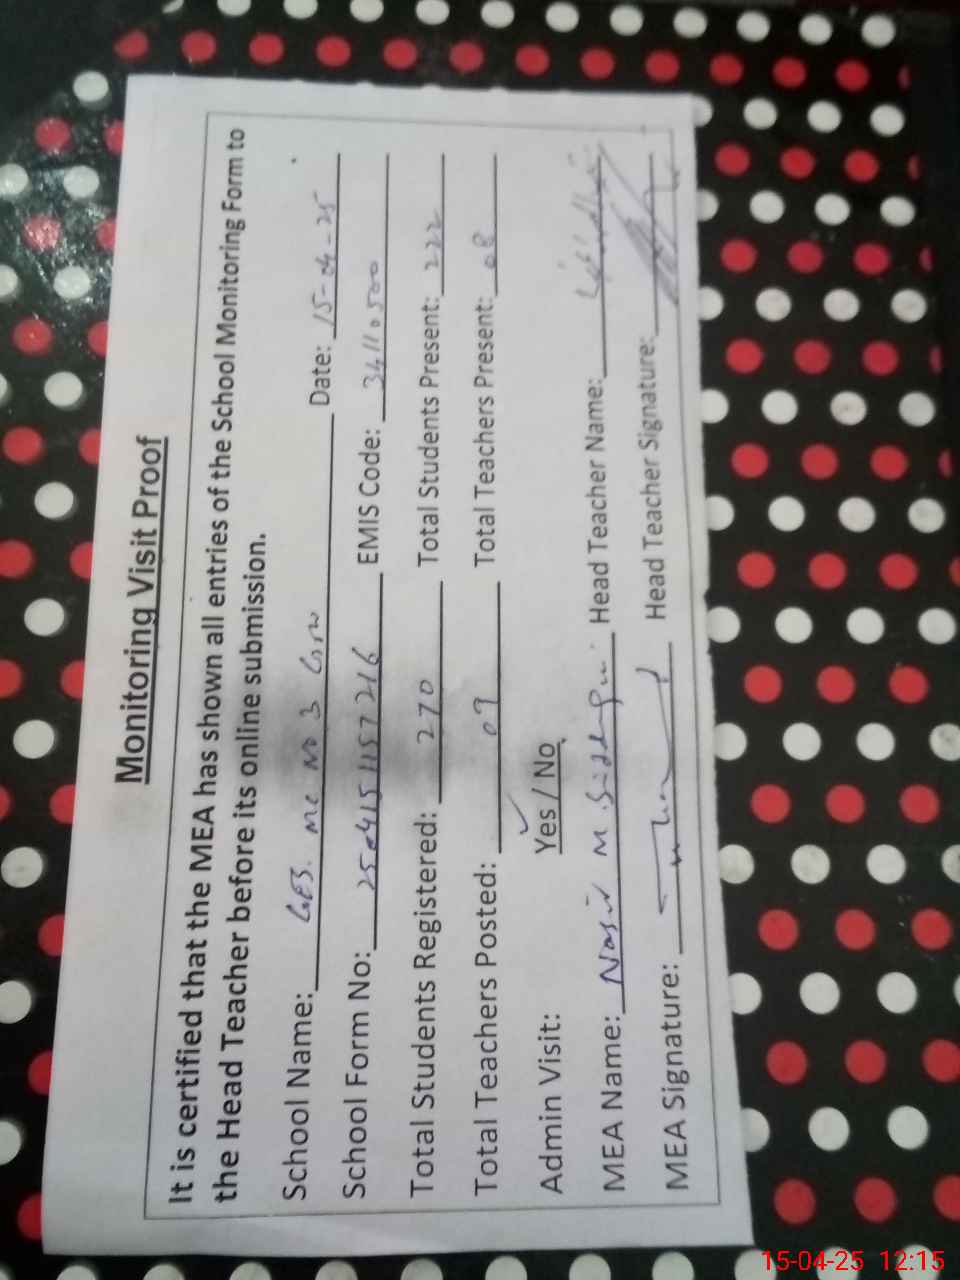 Monitoring Visit Proof
It is certified that the MEA has shown all entries of the School Monitoring Form to
the Head Teacher before its online submission.
School Name: No 3 Date: 15-04-25
School Form No: 2504151157216 EMIS Code: 34110500
Total Students Registered: 270 Total Students Present: 222
Total Teachers Posted: 09 Total Teachers Present: 08
Admin Visit: Yes / No
MEA Name: Nasir M. Head Teacher Name:
MEA Signature: Head Teacher Signature:
15-04-25 12:15